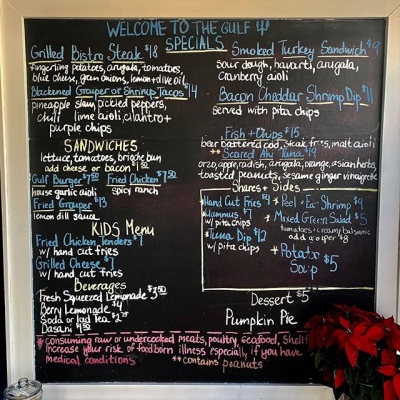 WELCOME TO THE GULF
SPECIALS
Grilled Bistro Steak $18
fingerling potatoes, arugala, tomatoes,
blue cheese, grain onions, lemon+olive oil
Blackened Grouper or Shrimp Tacos $14
pineapple slaw, pickled peppers,
chili lime aioli, cilantro +
purple chips
SANDWICHES
lettuce, tomatoes, brioche bun
add cheese or bacon
Gulf Burger $7.50
Fried Chicken $7.50
house garlic aioli
spicy ranch
Fried Grouper $13
lemon dill sauce
KIDS Menu
Fried Chicken Tenders
w/ hand cut fries
Grilled Cheese
w/ hand cut fries
Beverages
Fresh Squeezed Lemonade
Berry Lemonade $4
Soda or Iced Tea
Dasani
Smoked Turkey Sandwich $9
sour dough, havarti, arugala,
cranberry aioli
Bacon Cheddar Shrimp Dip $11
served with pita chips
Fish + Chips $15
beer battered cod, steak fries, malt aioli
** Seared Ahi Tuna $19
orzo, apple, radish, arugala, orange, asian herbs,
toasted peanuts, sesame ginger vinaigrette
Shares + Sides
Hand Cut Fries $4
Hummus $7
w/ pita chips
*Tuna Dip $12
w/ pita chips
* Peel + Eat Shrimp $9
* Mixed Green Salad $5
tomatoes + creamy balsamic
add grouper $8
* Potato
Soup $5
Dessert $5
Pumpkin Pie
*consuming raw or undercooked meats, poultry, seafood,
increase your risk of foodborn illness especially if you have
medical conditions
**contains peanuts